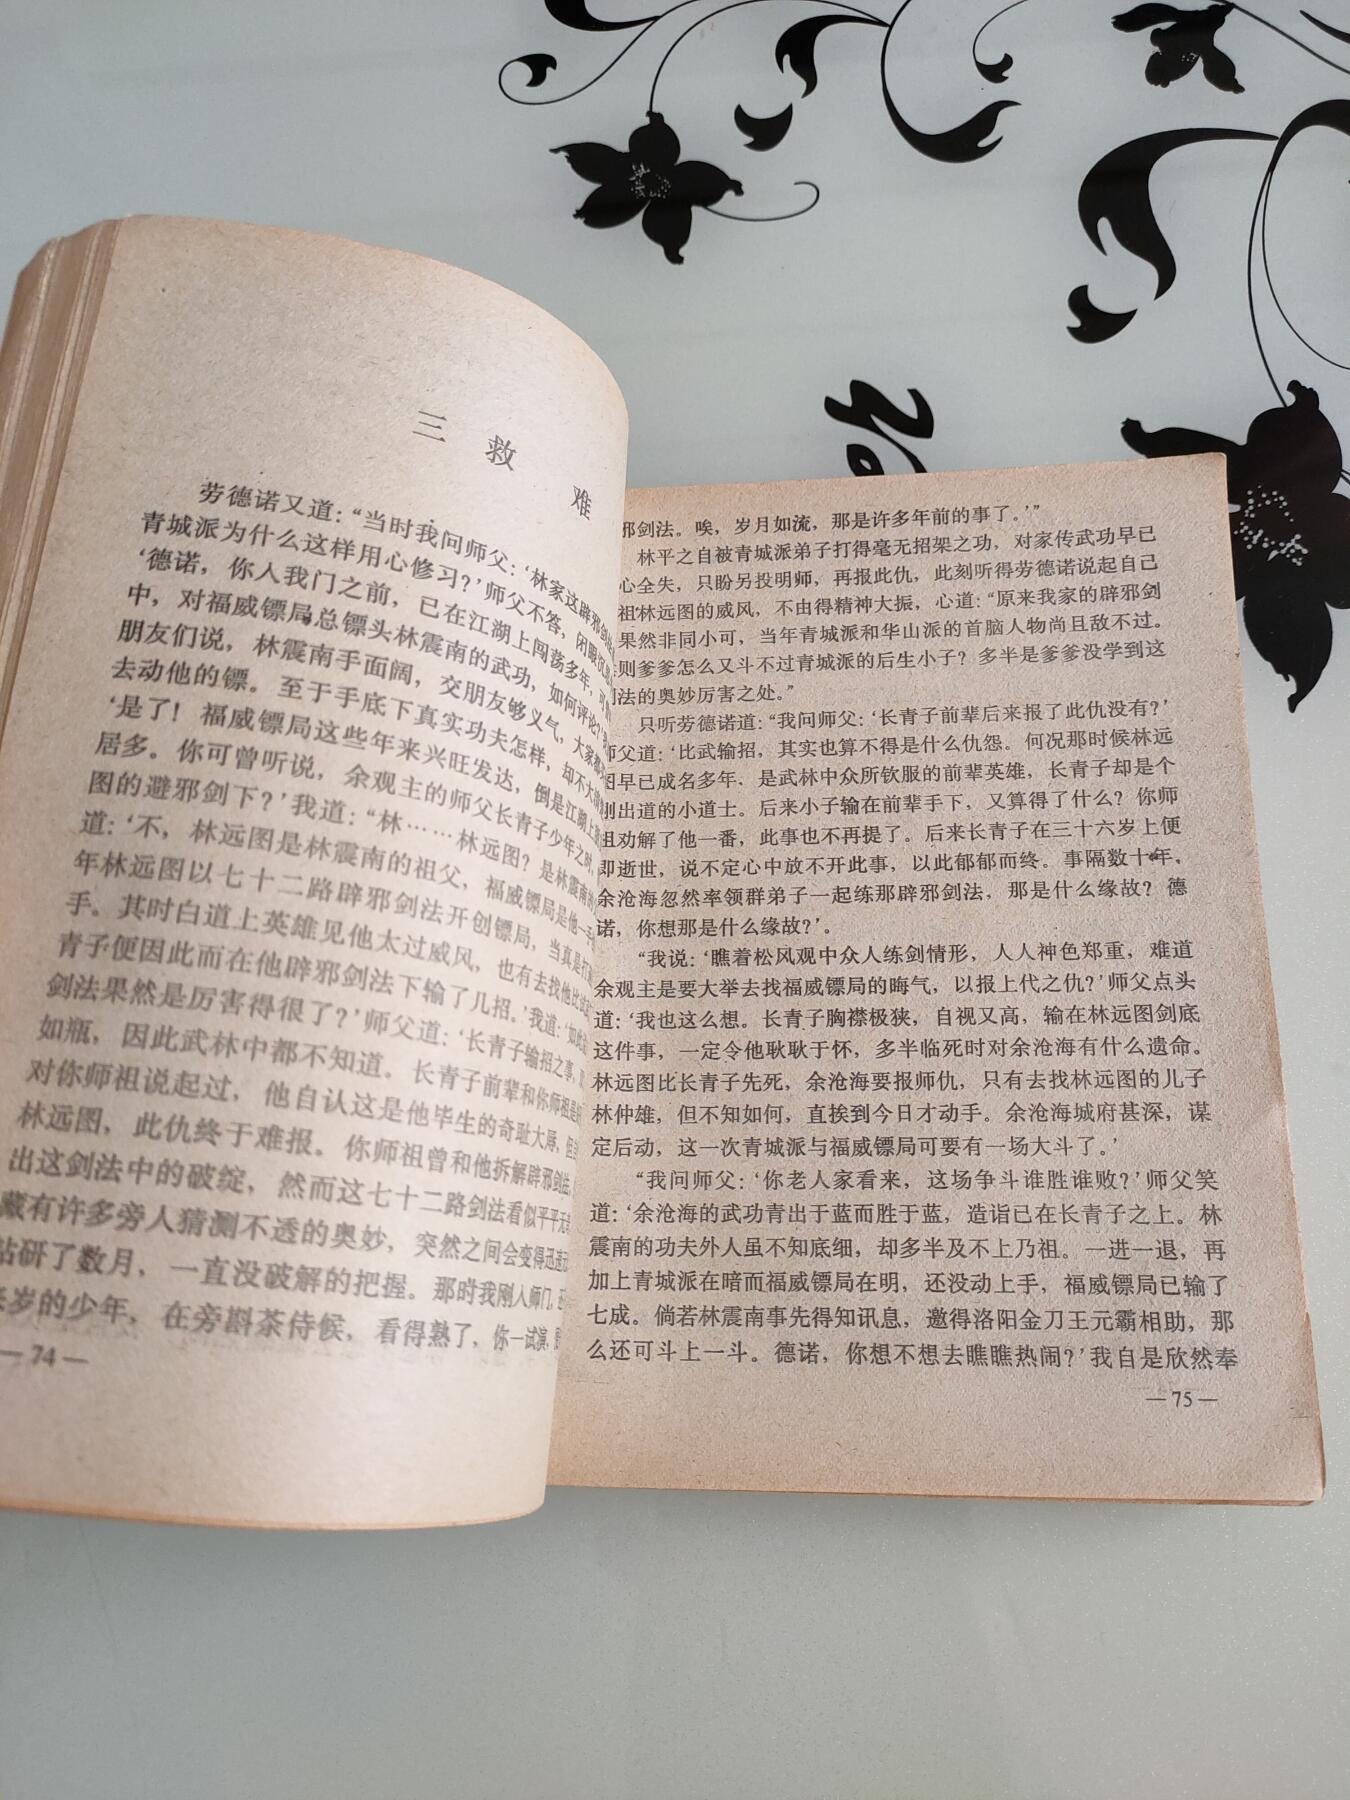 三 救 难
劳德诺又道：“当时我问师父：‘林家这辟邪剑
青城派为什么这样用心修习？’师父不答，闭眼沉
‘德诺，你人我门之前，已在江湖上闯荡多年，可
中，对福威镖局总镖头林震南的武功，如何评论？’
朋友们说，林震南手面阔，交朋友够义气，大家都
去动他的镖。至于手底下真实功夫怎样，却不大
‘是了！福威镖局这些年来兴旺发达，倒是江湖上
居多。你可曾听说，余观主的师父长青子少年之时，
图的避邪剑下？’我道：“林……林远图？是林震南的
道：‘不，林远图是林震南的祖父，福威镖局是他一手
年林远图以七十二路辟邪剑法开创镖局，当真是打
手。其时白道上英雄见他太过威风，也有去找他比试
青子便因此而在他辟邪剑法下输了几招。’我道：‘如此
剑法果然是厉害得很了？’师父道：‘长青子输招之事，
如瓶，因此武林中都不知道。长青子前辈和你师祖是
对你师祖说起过，他自认这是他毕生的奇耻大辱，但
林远图，此仇终于难报。你师祖曾和他拆解辟邪剑法，
出这剑法中的破绽，然而这七十二路剑法看似平平无
藏有许多旁人猜测不透的奥妙，突然之间会变得迅速
钻研了数月，一直没破解的把握。那时我刚人师门，还
岁的少年，在旁斟茶侍候，看得熟了，你一试演，
—74—
邪剑法。唉，岁月如流，那是许多年前的事了。’”
林平之自被青城派弟子打得毫无招架之功，对家传武功早已
心全失，只盼另投明师，再报此仇，此刻听得劳德诺说起自己
祖林远图的威风，不由得精神大振，心道：“原来我家的辟邪剑
果然非同小可，当年青城派和华山派的首脑人物尚且敌不过。
则爹爹怎么又斗不过青城派的后生小子？多半是爹爹没学到这
剑法的奥妙厉害之处。”
只听劳德诺道：“我问师父：‘长青子前辈后来报了此仇没有？’
师父道：‘比武输招，其实也算不得是什么仇怨。何况那时候林远
图早已成名多年、是武林中众所钦服的前辈英雄，长青子却是个
刚出道的小道士。后来小子输在前辈手下，又算得了什么？你师
祖劝解了他一番，此事也不再提了。后来长青子在三十六岁上便
即逝世，说不定心中放不开此事，以此郁郁而终。事隔数十年，
余沧海忽然率领群弟子一起练那辟邪剑法，那是什么缘故？德
诺，你想那是什么缘故？’。
“我说：‘瞧着松风观中众人练剑情形，人人神色郑重，难道
余观主是要大举去找福威镖局的晦气，以报上代之仇？’师父点头
道：‘我也这么想。长青子胸襟极狭，自视又高，输在林远图剑底
这件事，一定令他耿耿于怀，多半临死时对余沧海有什么遗命。
林远图比长青子先死，余沧海要报师仇，只有去找林远图的儿子
林仲雄，但不知如何，直挨到今日才动手。余沧海城府甚深，谋
定后动，这一次青城派与福威镖局可要有一场大斗了。’
“我问师父：‘你老人家看来，这场争斗谁胜谁败？’师父笑
道：‘余沧海的武功青出于蓝而胜于蓝，造诣已在长青子之上。林
震南的功夫外人虽不知底细，却多半及不上乃祖。一进一退，再
加上青城派在暗而福威镖局在明，还没动上手，福威镖局已输了
七成。倘若林震南事先得知讯息，邀得洛阳金刀王元霸相助，那
么还可斗上一斗。德诺，你想不想去瞧瞧热闹？’我自是欣然奉
—75—